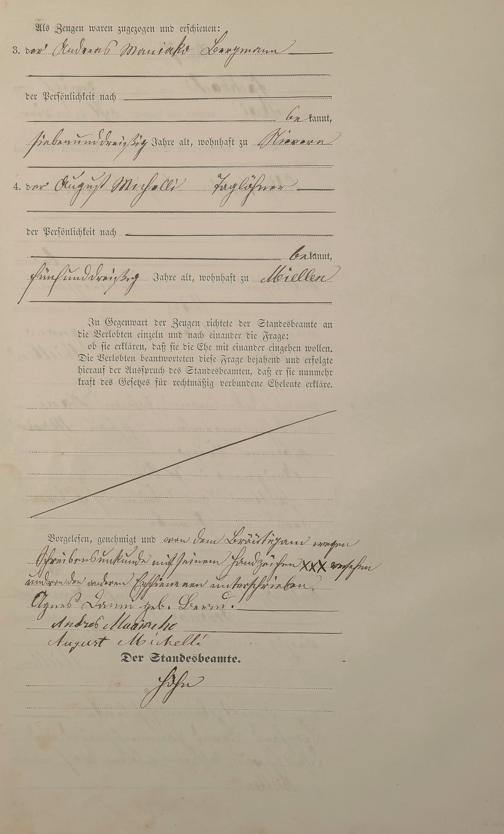 Als Zeugen waren zugezogen und erschienen:
3. der Andreas Bergmann
der Persönlichkeit nach
bekannt,
siebenunddreißig Jahre alt, wohnhaft zu Nievern
4. der August Michelli Taglöhner
der Persönlichkeit nach
bekannt,
fünfunddreißig Jahre alt, wohnhaft zu Miellen
In Gegenwart der Zeugen richtete der Standesbeamte an
die Verlobten einzeln und nach einander die Frage:
ob sie erklären, daß sie die Ehe mit einander eingehen wollen.
Die Verlobten beantworteten diese Frage bejahend und erfolgte
hierauf der Ausspruch des Standesbeamten, daß er sie nunmehr
kraft des Gesetzes für rechtmäßig verbundene Eheleute erkläre.
Vorgelesen, genehmigt und von dem Bräutigam wegen
Schreibensunkunde mit seinem Handzeichen XXX versehen
und von den anderen Erschienenen unterschrieben.
Agnes geb.
Andres
August Michelli
Der Standesbeamte.
Höhn